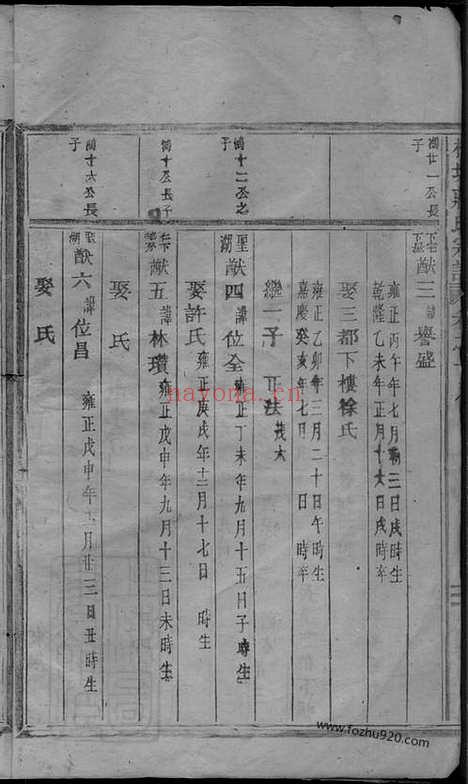 湖廿一公長子
猷三諱譽盛
雍正丙午年七月初三日戌時生
乾隆乙未年正月十六日戌時卒
娶三都下樓徐氏
雍正乙卯年三月二十日午時生
嘉慶癸亥年七月 日 時卒
繼一子 正法
湖十二公之子
聖湖
猷四諱位全
雍正丁未年九月十五日子時生
娶許氏
雍正庚戌年十二月十七日 時生
湖十公長子
猷五諱林瓚
雍正戊申年九月十三日未時生
娶 氏
湖十六公長子
猷六諱位昌
雍正戊申年 月廿三日丑時生
娶 氏
nayona.cn
www.fozhu920.com